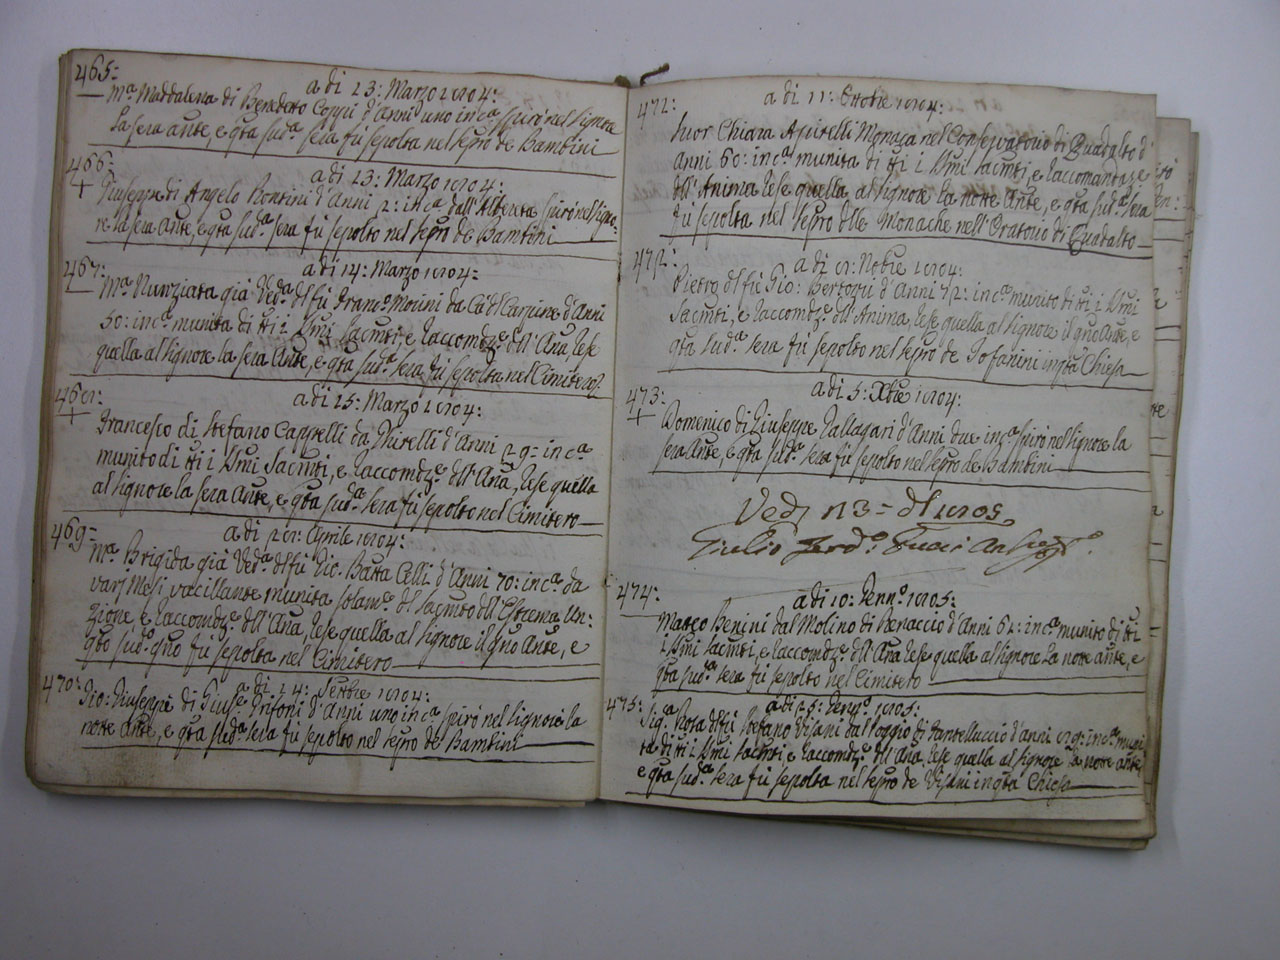 465:
a di 23: Marzo 1804:
Mª Maddalena di Benedetto Coppi d'Anni uno incª spirò nel Signore
la sera ante, e qta sudª sera fù sepolta nel sepro de Bambini
466:
a di 23: Marzo 1804:
Giuseppe di Angelo Pontini d'Anni 2: incª dall'Albereta spirò nel Signo:
re la sera Ante, e qta sudª sera fù sepolto nel sepro de Bambini
467:
a di 14: Marzo 1804:
Mª Nunziata già Vedª del fù Francº Morini da Ca del Carpine d'Anni
50: incª munita di tti i SSmi Sacmti, e raccomdzᵉ dell'Ana, rese
quella al Signore la sera Ante, e qta sudª sera fù sepolta nel Cimitero
468:
a di 25: Marzo 1804:
Francesco di Stefano Cappelli da Ghirelli d'Anni 29: incª
munito di tti i SSmi Sacmti, e raccomdzᵉ dell'Ana, rese quella
al Signore la sera Ante, e qta sudª sera fù sepolto nel Cimitero
469:
a di 28: Aprile 1804:
Mª Brigida già Vedª del fù Gio: Batta Celli d'Anni 70: incª da
varj Mesi vacillante munita solamᵉ del Sacmto dell'Estrema Un:
zione, e raccomdzᵉ dell'Ana, rese quella al Signore il gno Ante, e
qto sudº gno fù sepolta nel Cimitero
470:
a di 14: Settbre 1804:
Gio: Giuseppe di Giuse Grifoni d'Anni uno incª spirò nel Signore la
notte Ante, e qta sudª sera fù sepolto nel sepro de Bambini
471:
a di 11: Ottbre 1804:
Suor Chiara Apirelli Monaca nel Conservatorio di Quadalto d'
Anni 60: incª munita di tti i SSmi Sacmti, e raccomandazᵉ
dell'Anima rese quella al Signore la notte Ante, e qta sudª sera
fù sepolta nel sepro delle Monache nell'Oratorio di Quadalto
472:
a di 8: Nbbre 1804:
Pietro del fù Gio: Bertoqui d'Anni 72: incª munito di tti i SSmi
Sacmti, e raccomdzᵉ dell'Anima, rese quella al Signore il gno Ante, e
qta sudª sera fù sepolto nel sepro de Fofanini in qta Chiesa
473:
a di 5: Xbre 1804:
Domenico di Giuseppe Tallagari d'Anni due incª spirò nel Signore la
sera Ante, e qta sudª sera fù sepolto nel sepro de Bambini
Vedi n 3 = del 1805
Giulio Ferdº
474:
a di 10: Gennº 1805:
Matteo Benini dal Molino di Benaccio d'Anni 61: incª munito di tti
i SSmi Sacmti, e raccomdzᵉ dell'Ana rese quella al Signore la notte ante, e
qta sudª sera fù sepolto nel Cimitero
475:
a di 25: Gennº 1805:
Sigª Rosa del fù Stefano Visani dal Poggio di Fantelluccio d'anni 89: incª muni
ta di tti i SSmi Sacmti, e raccomdzᵉ dell'Ana, rese quella al Signore la notte ante,
e qta sudª sera fù sepolta nel sepro de Visani in qta Chiesa